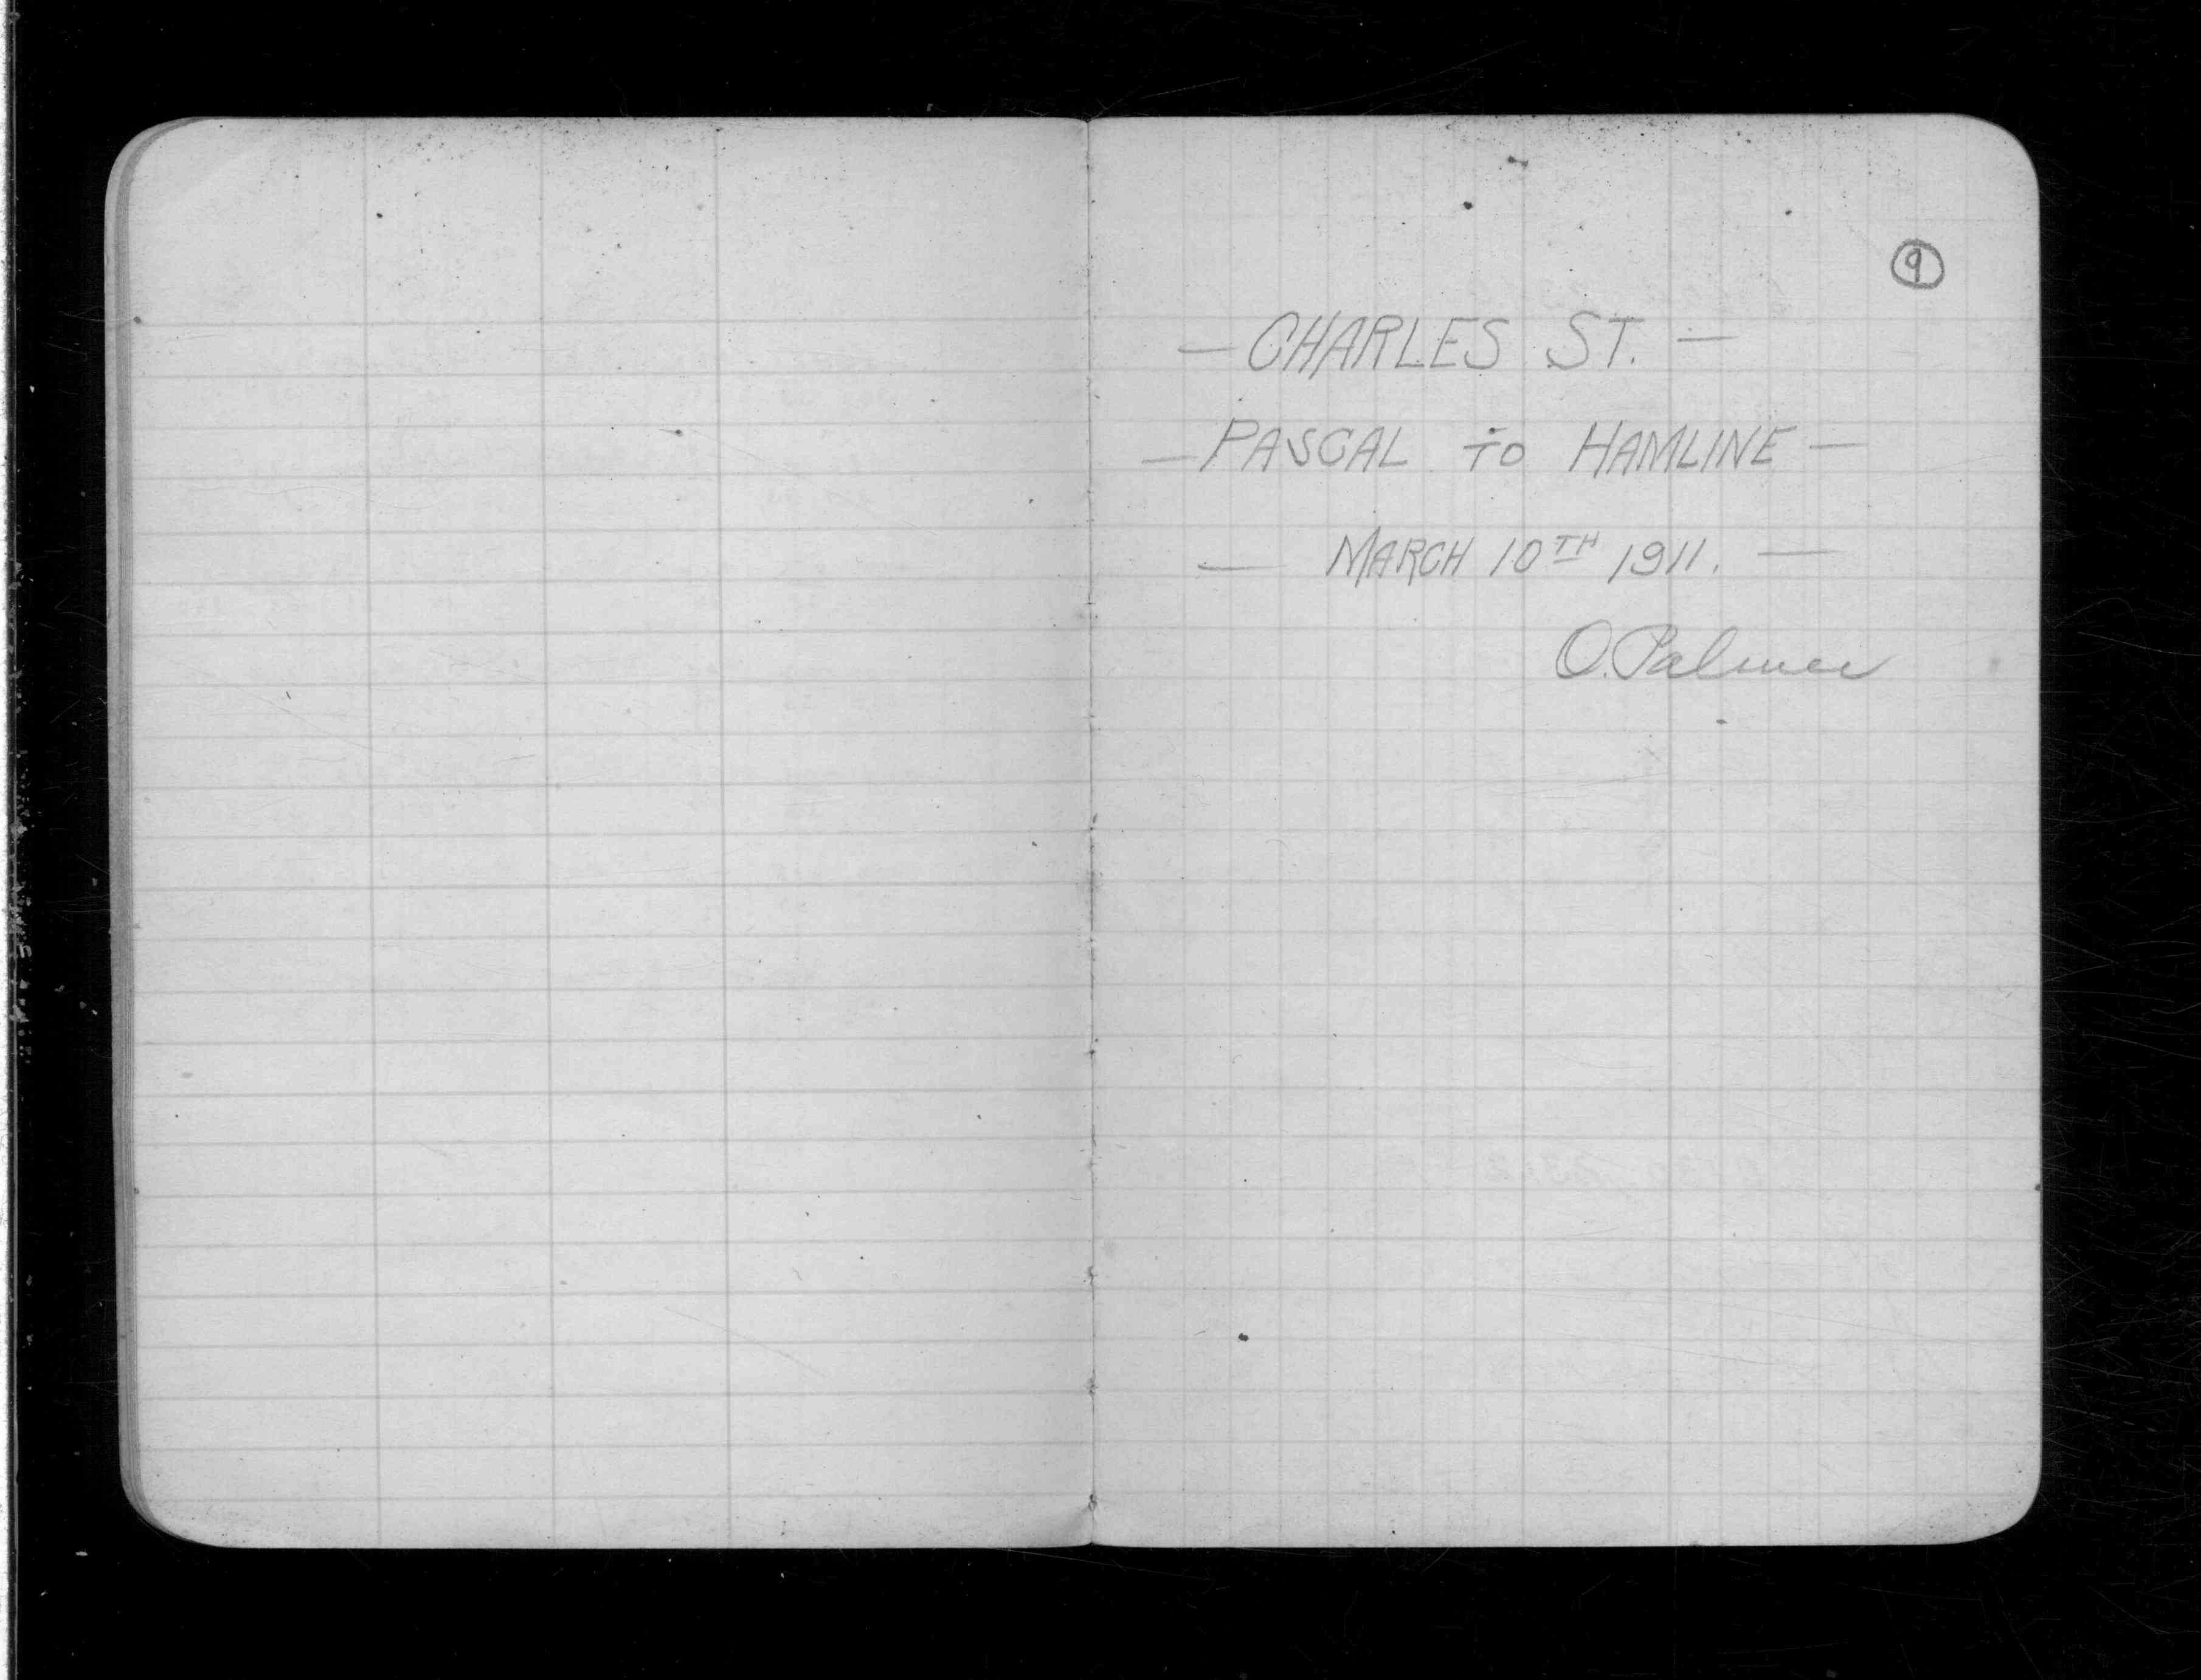 9
— CHARLES ST. —
— PASCAL TO HAMLINE —
— MARCH 10TH 1911. —
O. Palmer